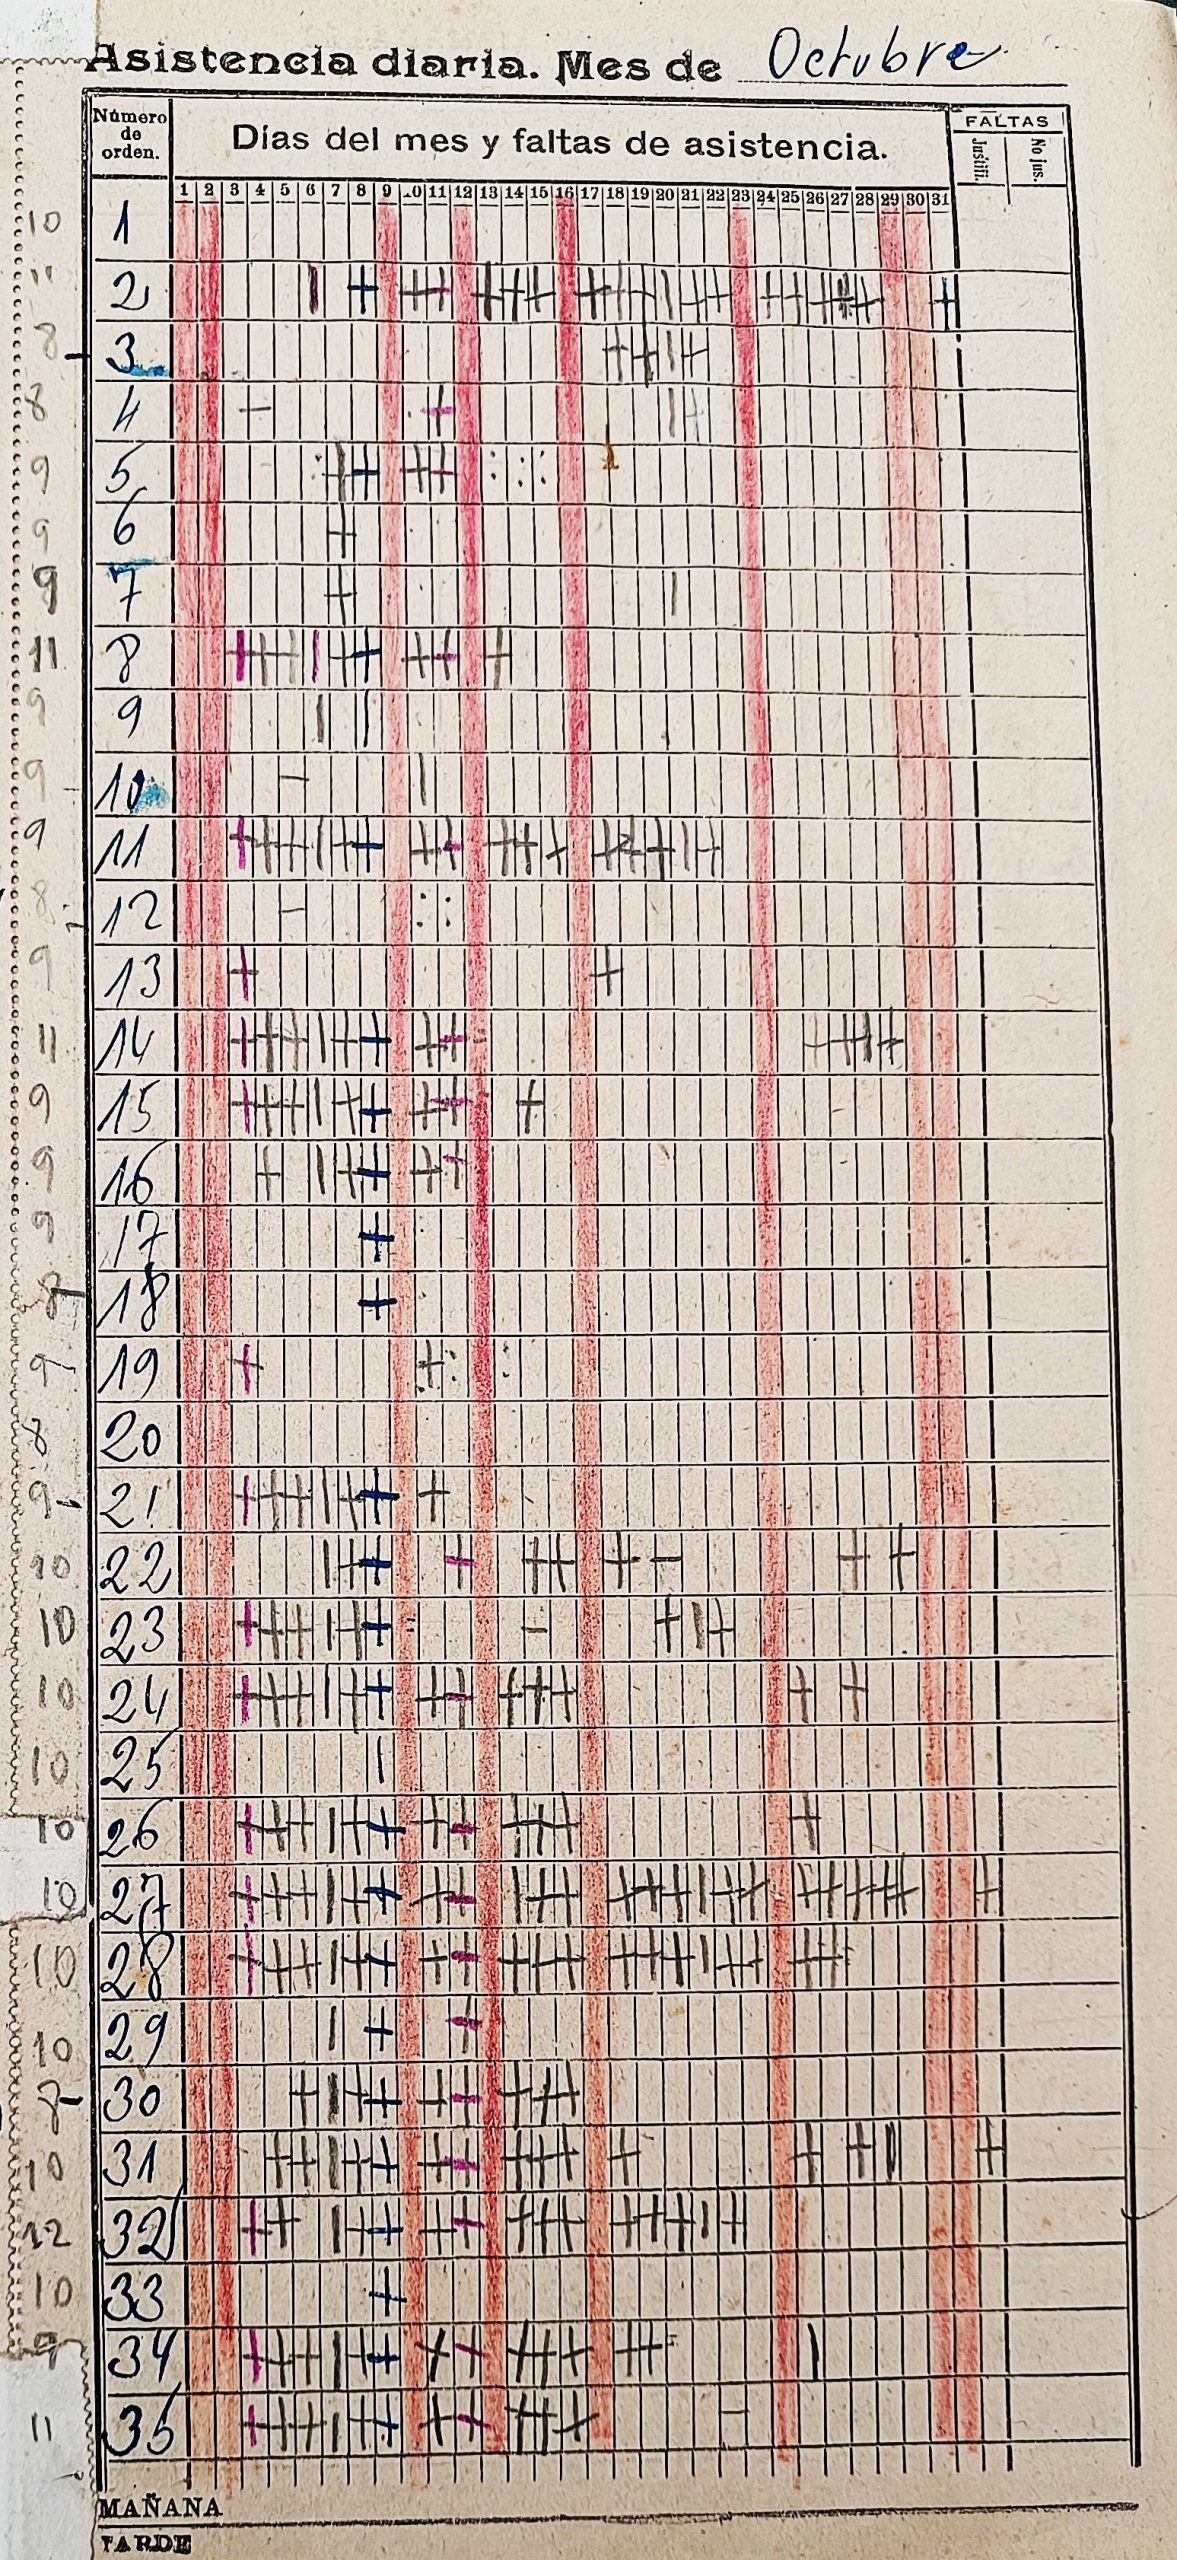 Asistencia diaria. Mes de Octubre
Número de orden.
Días del mes y faltas de asistencia.
FALTAS
Justifi. No jus.
1 2 3 4 5 6 7 8 9 10 11 12 13 14 15 16 17 18 19 20 21 22 23 24 25 26 27 28 29 30 31
10 1
11 2
8 3
8 4
9 5
9 6
9 7
11 8
9 9
9 10
9 11
8 12
9 13
11 14
9 15
9 16
9 17
8 18
9 19
8 20
9 21
10 22
10 23
10 24
10 25
10 26
10 27
10 28
10 29
8 30
10 31
12 32
10 33
9 34
11 35
MAÑANA
TARDE